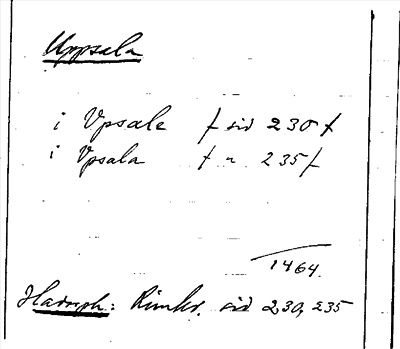 Uppsala
i Vpsale f sid 230 f
i Vpsala f " 235 f
1464.
Hadorph: Rimkr. sid 230, 235